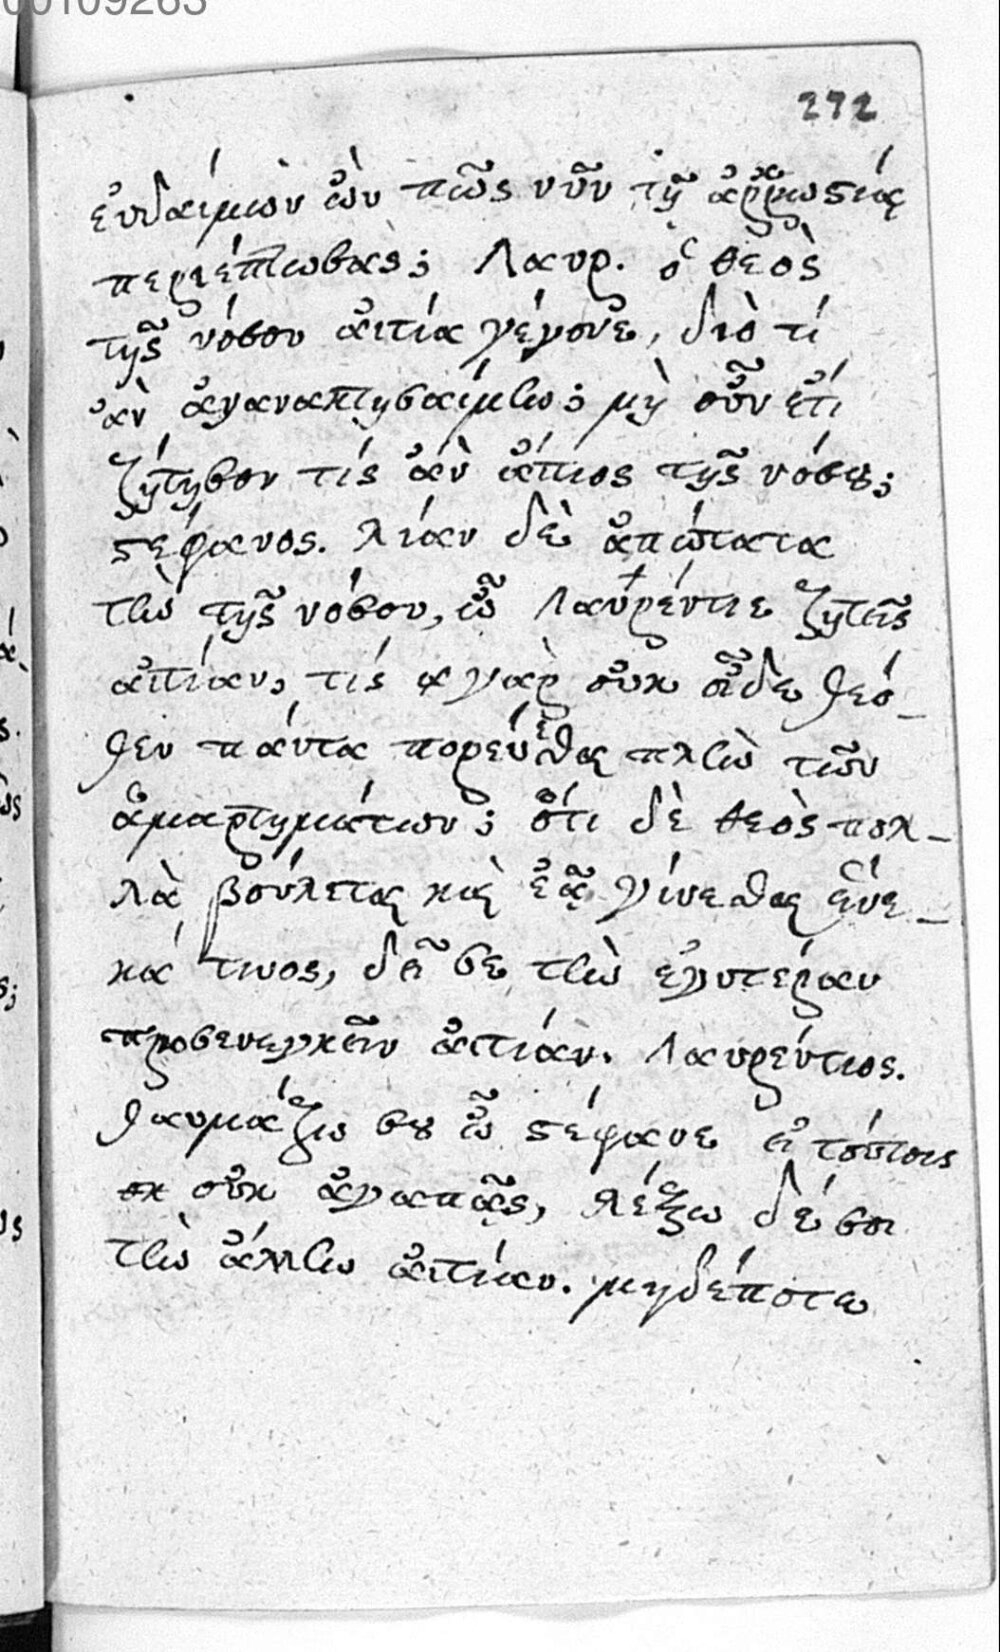 00109263
272
εὐδαίμων ὢν πῶς νῦν τῇ ἀῤῥωστίᾳ
περιέπτωσας; Λαυρ. ὁ θεὸς
τῆς νόσου αἰτία γέγονε, διὸ τί
ἂν ἀγανακτησαίμην; μὴ οὖν ἔτι
ζήτησον τίς ἂν αἴτιος τῆς νόσου;
στέφανος. λίαν δὲ ἀπώτατα
τὴν τῆς νόσου, ὦ Λαυρέντιε ζητεῖς
αἰτίαν, τίς γὰρ οὐκ οἶδε θεό-
θεν πάντα πορεύεσθαι πλὴν τῶν
ἁμαρτημάτων; ὅτι δὲ θεὸς πολ-
λὰ βούλεται καὶ ἐᾷ γίνεσθαι εἵνε-
κά τινος, δεῖ σε τὴν ἐγγυτέραν
προσενεγκεῖν αἰτίαν. Λαυρέντιος.
θαυμάζω σου ὦ στέφανε εἰ τούτοις
οὐκ ἀγαπᾷς, λέξω δέ σοι
τὴν ἄλλην αἰτίαν. μηδέποτε